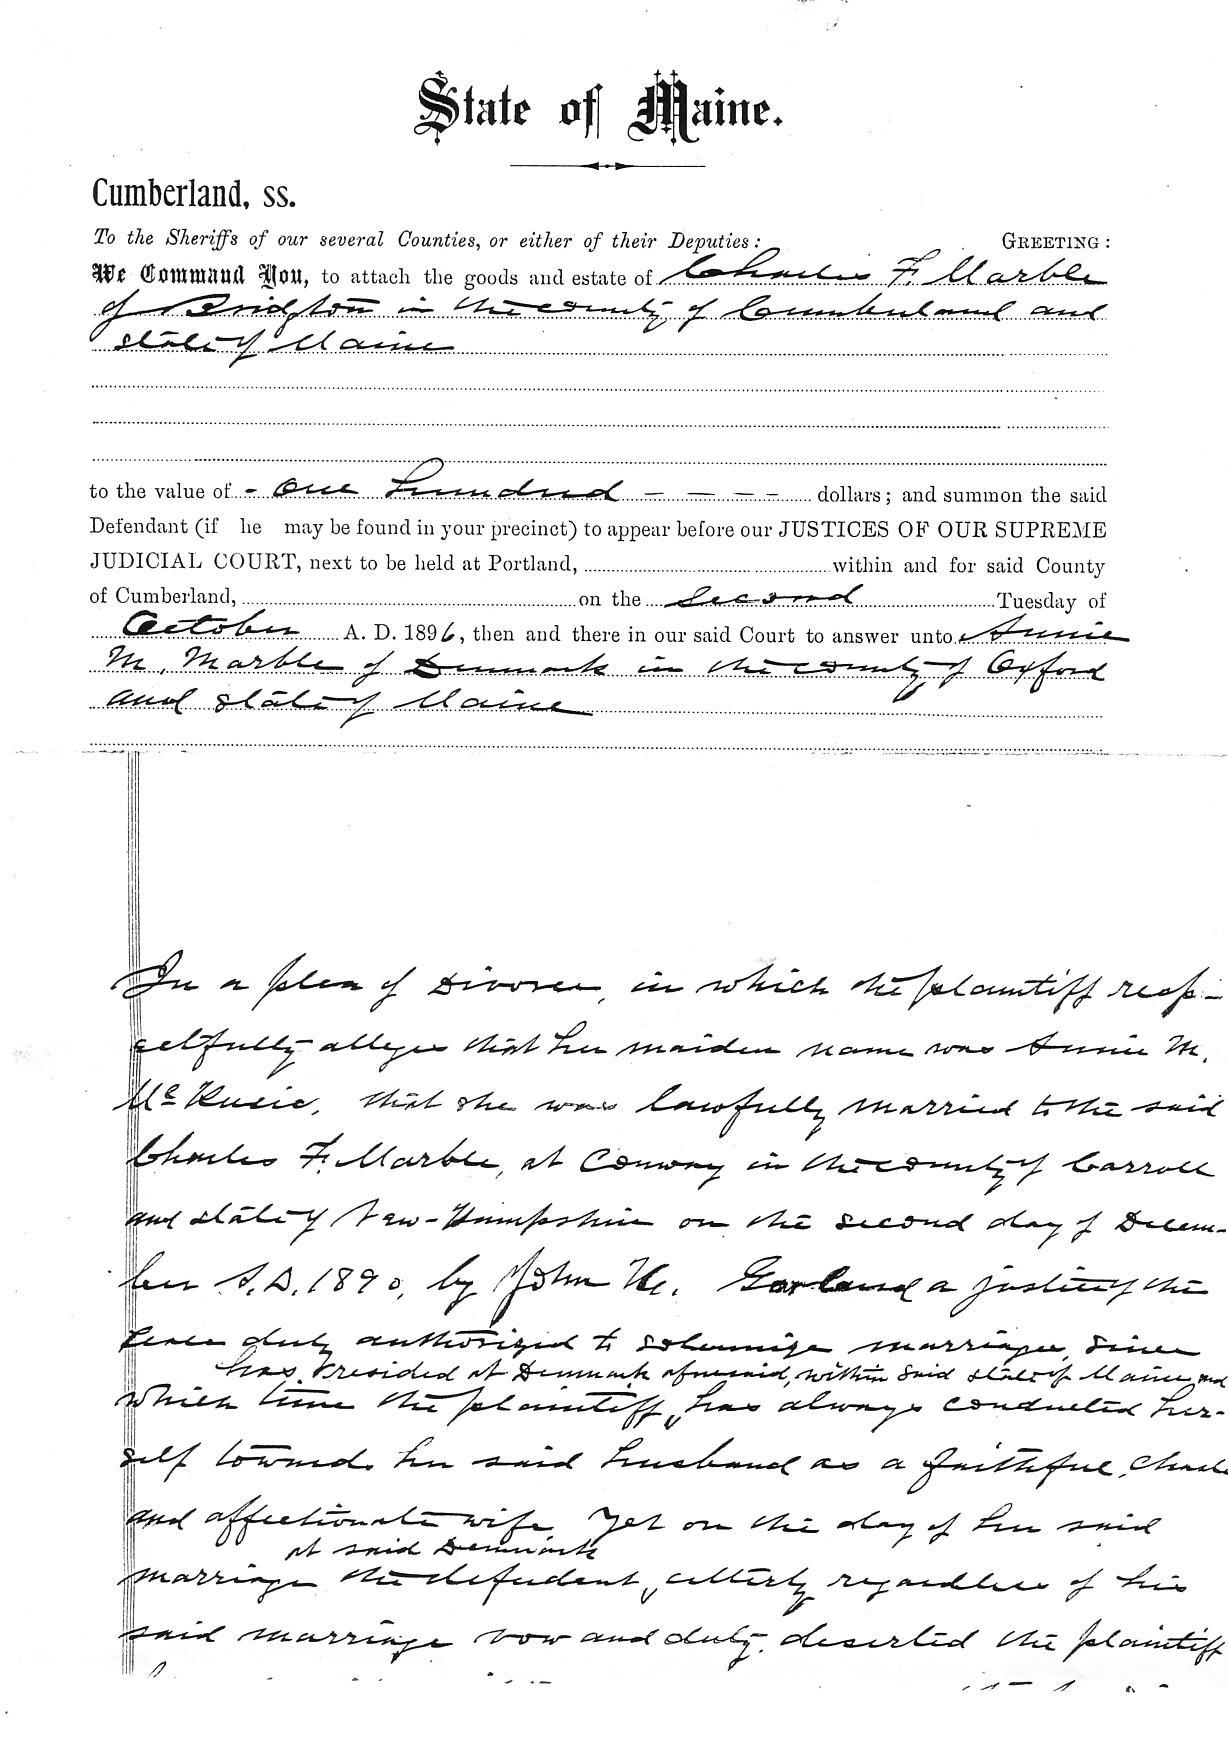 State of Maine.
Cumberland, ss.
To the Sheriffs of our several Counties, or either of their Deputies: GREETING:
We Command You, to attach the goods and estate of Charles F. Marble
of Bridgton in the county of Cumberland and
state of Maine
to the value of - One hundred - - - - dollars; and summon the said
Defendant (if he may be found in your precinct) to appear before our JUSTICES OF OUR SUPREME
JUDICIAL COURT, next to be held at Portland, within and for said County
of Cumberland, on the Second Tuesday of
October A. D. 1896, then and there in our said Court to answer unto Annie
M. Marble of Denmark in the county of Oxford
and state of Maine
In a plea of Divorce, in which the plaintiff resp-
ectfully alleges that her maiden name was Annie M.
McKusic, that she was lawfully married to the said
Charles F. Marble, at Conway in the county of Carroll
and state of New-Hampshire on the second day of Decem-
ber A.D. 1890, by John Garland a justice of the
Peace duly authorized to solemnize marriages, since
has resided at Denmark aforesaid, within said state of Maine, and
which time the plaintiff, has always conducted her-
self towards her said husband as a faithful, chaste
and affectionate wife. Yet on the day of her said
at said Denmark
marriage the defendent, utterly regardless of his
said marriage vow and duty, deserted the plaintiff